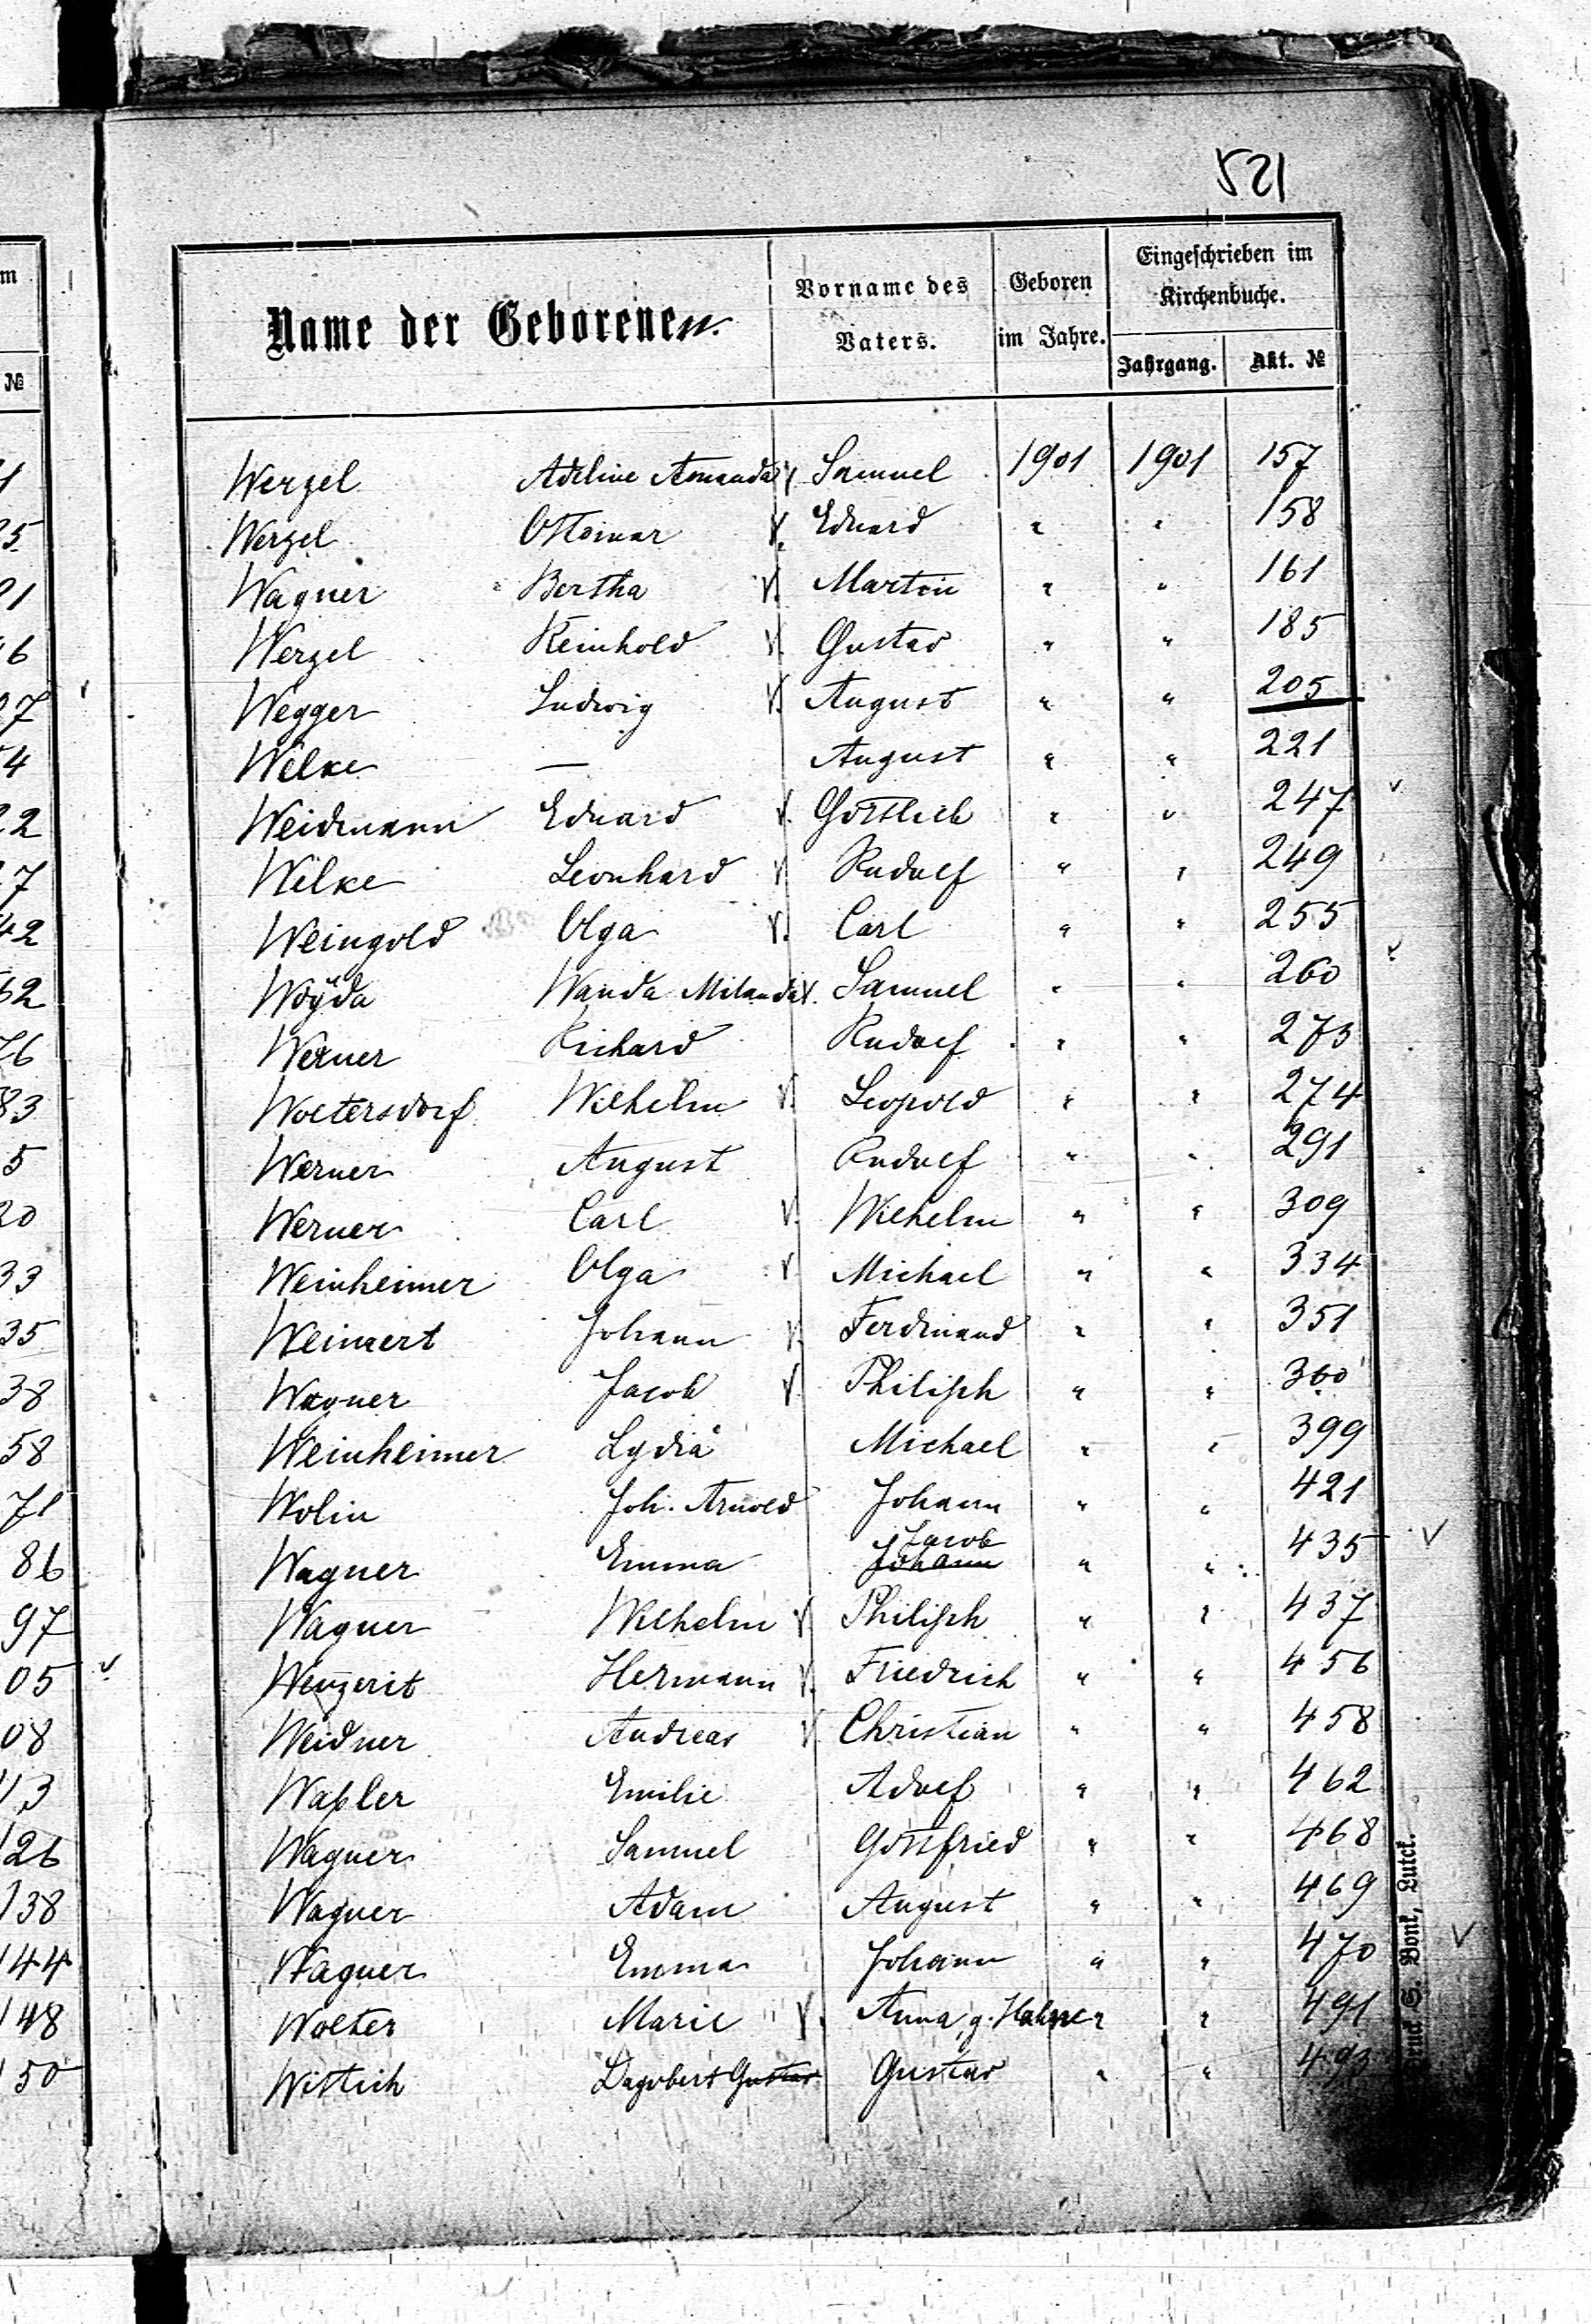 521
Name der Geborenen.
Vorname des Vaters.
Geboren im Jahre.
Eingeschrieben im Kirchenbuche.
Jahrgang. Akt. №
Werzel Adeline Amanda V. Samuel 1901 1901 157
Werzel Ottomar V. Eduard " " 158
Wagner Bertha V. Martin " " 161
Werzel Reinhold V. Gustav " " 185
Wegger Ludwig V. August " " 205
Wilke — August " " 221
Weidmann Eduard V. Gottlieb " " 247 v
Wilke Leonhard V Rudolf " " 249
Weingold Olga V. Carl " " 255
Woyda Wanda Milanda V. Samuel " " 260 v
Werner Richard Rudolf " " 273
Woltersdorf Wilhelm V. Leopold " " 274
Werner August Rudolf " " 291
Werner Carl V. Wilhelm " " 309
Weinheimer Olga V Michael " " 334
Weinert Johann V. Ferdinand " " 351
Wagner Jacob V. Philipp " " 360
Weinheimer Lydia Michael " " 399
Wolin Joh. Arnold Johann " " 421
Wagner Emma Jacob Johann " " 435 V
Wagner Wilhelm V Philipp " " 437
Wenzerit Hermann V. Friedrich " " 456
Weidner Andreas V Christian " " 458
Waßler Emilie Adolf " " 462
Wagner Samuel Gottfried " " 468
Wagner Adam August " " 469
Wagner Emma Johann " " 470 V
Wolter Marie V. Anna, g. Hahn " " 491
Wittich Dagobert Gustav Gustav " " 493
Druck S. Bonk, Lutck.